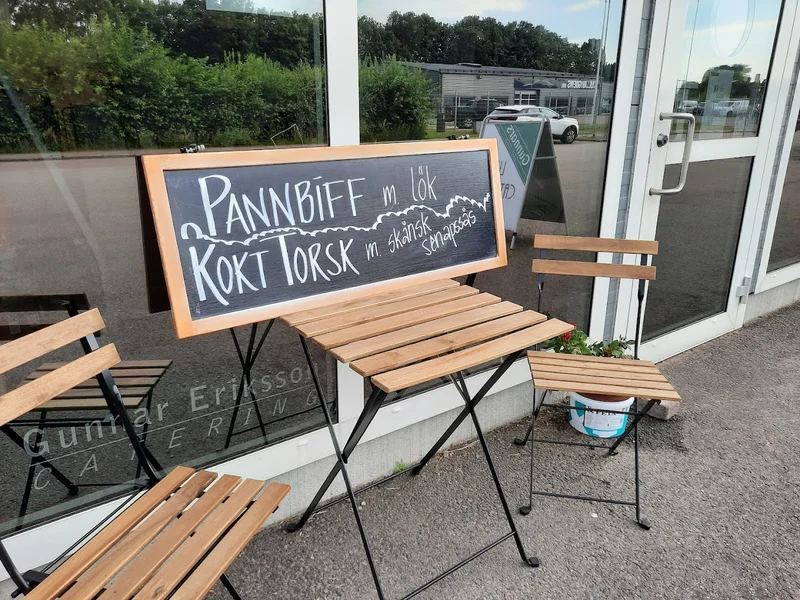 PANNBIFF m. lök
KOKT TORSK m. skånsk senapssås
Gunnar Eriksson
CATERING
Gunnars